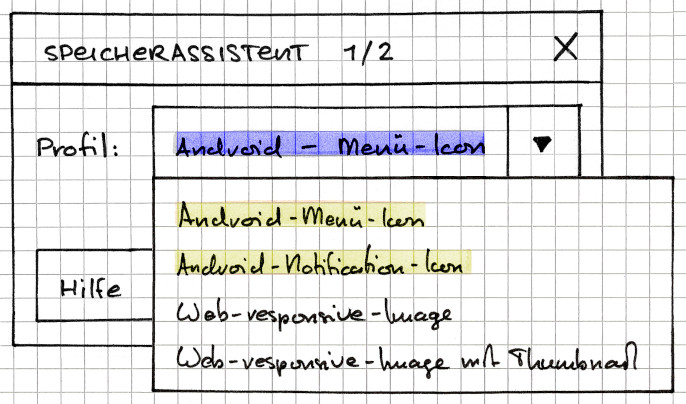 SPEICHERASSISTENT 1/2 X
Profil: Android - Menü-Icon
Android-Menü-Icon
Android-Notification-Icon
Hilfe
Web-responsive-Image
Web-responsive-Image mit Thumbnail